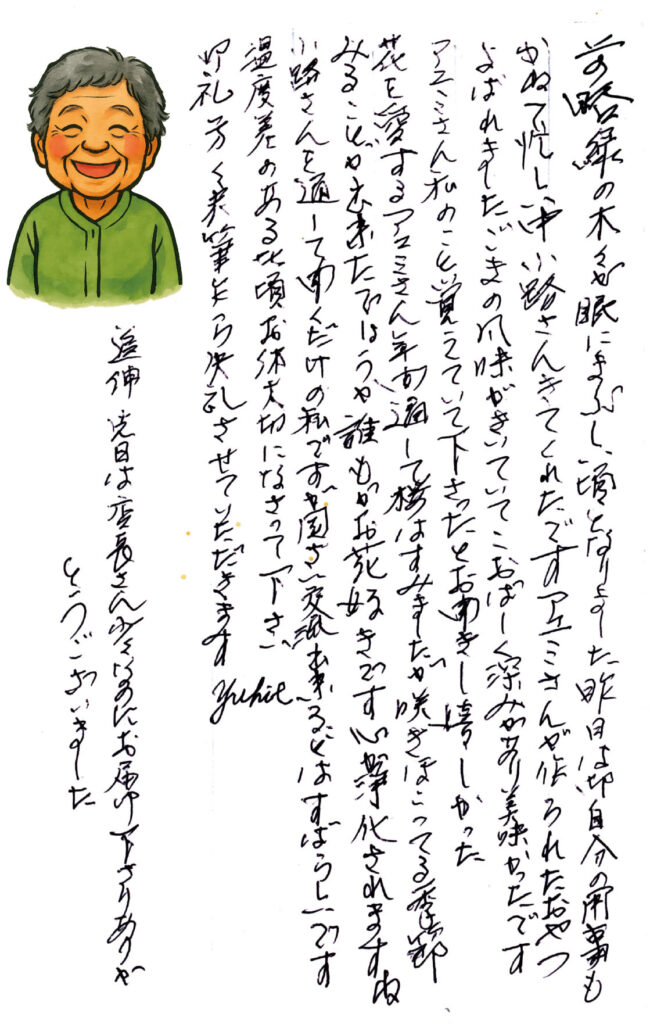 前略 緑の木々が眼にまぶしい頃となりました 昨日は御自分の用事も
かねて忙しい中小路さんきてくれたです アユミさんが作られたおやつ
よばれました ごまの風味がきいていてこおばしく深みがあり美味かったです
アユミさん私のこと覚えていて下さったとお聞きし嬉しかった
花を愛するアユミさん年間通して 桜はすみましたが咲きほこってる季節
みることが出来たでしょうか 誰もがお花好きです 心が浄化されますね
小路さんを通して聞くだけの私ですが 交流出来ることはすばらしいです
温度差のある此頃お体大切になさって下さい
御礼方々 乱筆にて失礼させていただきます
追伸 先日は店長さん お届け下さりありが
とうございました